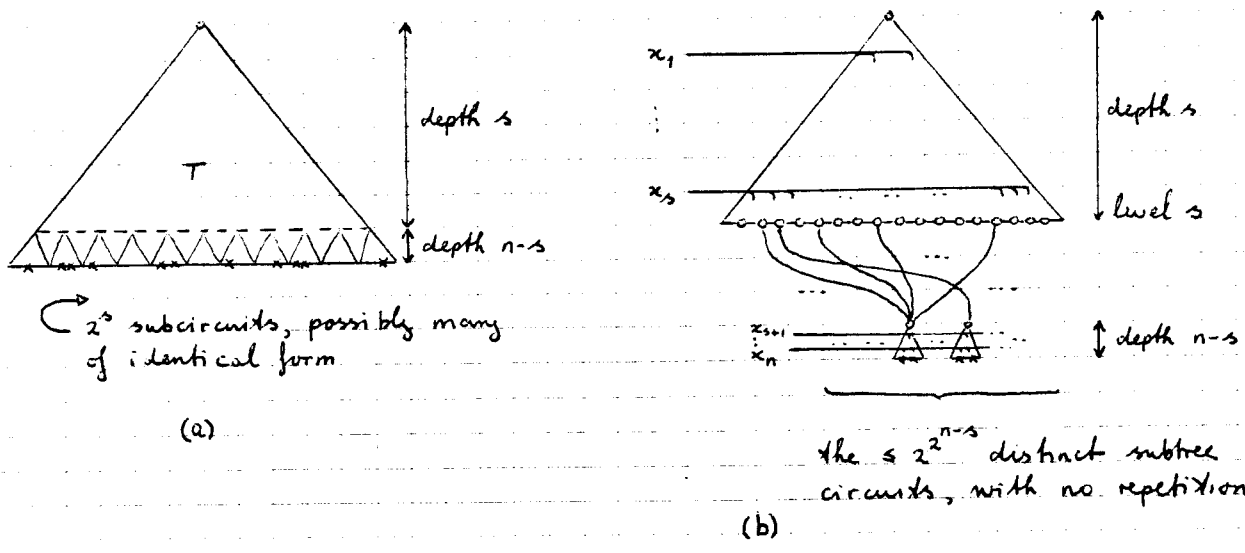 depth s
T
depth n-s
2^s subcircuits, possibly many
of identical form
(a)
x_1
depth s
x_s
level s
x_{s+1}
x_n
depth n-s
the ≤ 2^{2^{n-s}} distinct subtree
circuits, with no repetition
(b)